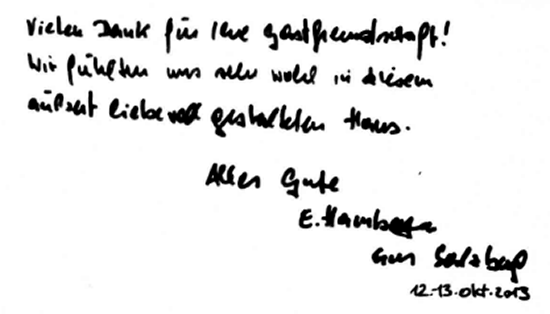 Vielen Dank für Ihre Gastfreundschaft!
Wir fühlten uns sehr wohl in diesem
äußerst liebevoll gestalteten Haus.
Alles Gute
E.
aus Salzburg
12.-13. Okt. 2013